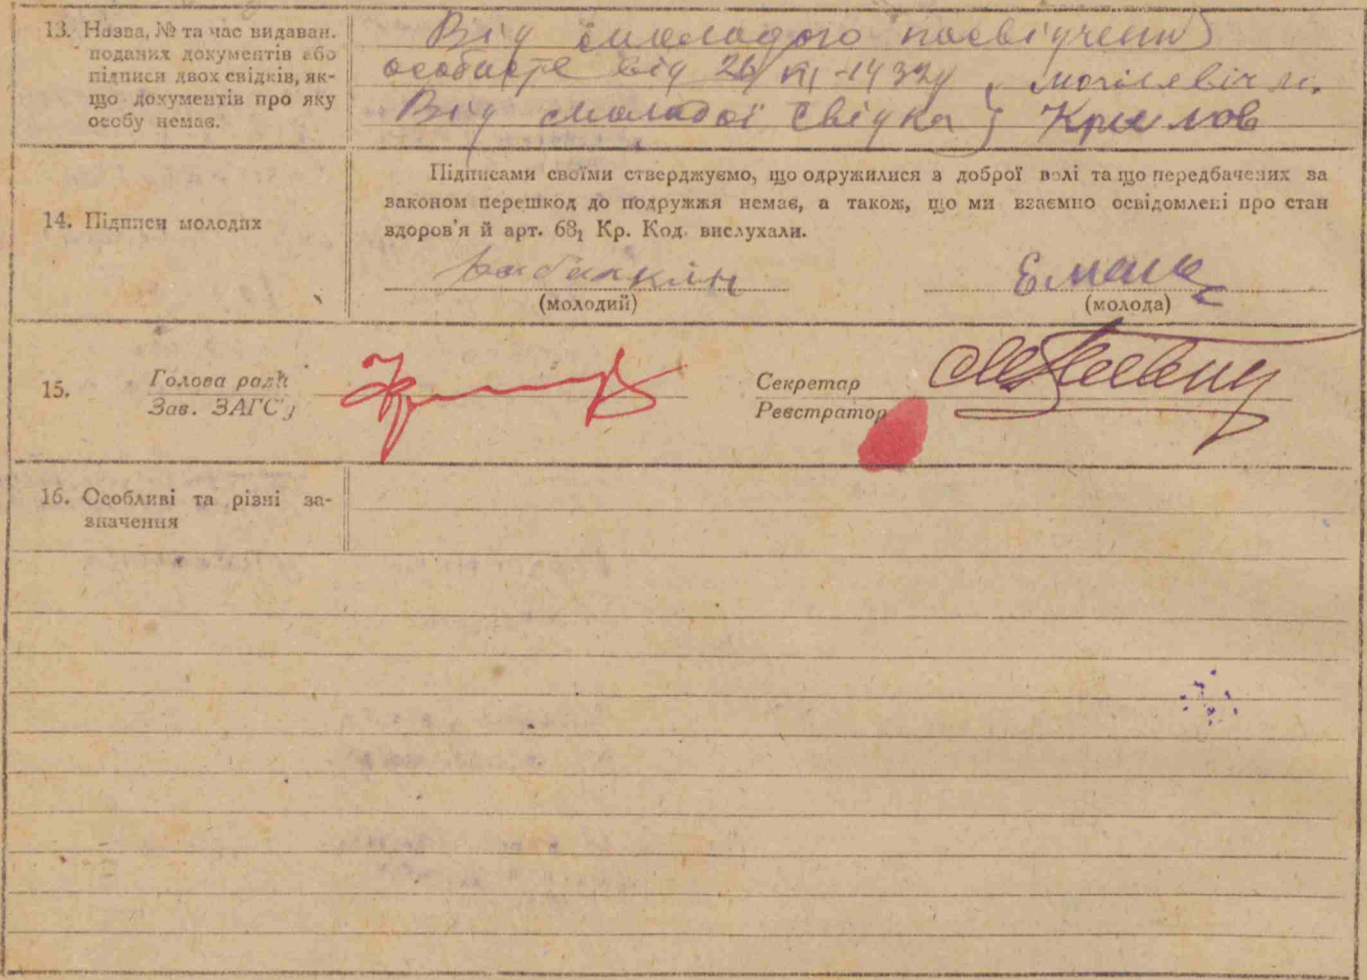 13. Назва, № та час видаван. поданих документів або підписи двох свідків, як-що документів про яку особу немає.
Від молодого посвідчення
особисте від 26/ІІІ-1932р
Від молодої свідка Крилов
14. Підписи молодих
Підписами своїми стверджуємо, що одружилися з доброї волі та що передбачених за
законом перешкод до подружжя немає, а також, що ми взаємно освідомлені про стан
здоров'я й арт. 68₁ Кр. Код. вислухали.
(молодий) (молода)
15. Голова ради
Зав. ЗАГС'у
Секретар
Реєстратор
16. Особливі та різні за-
значення